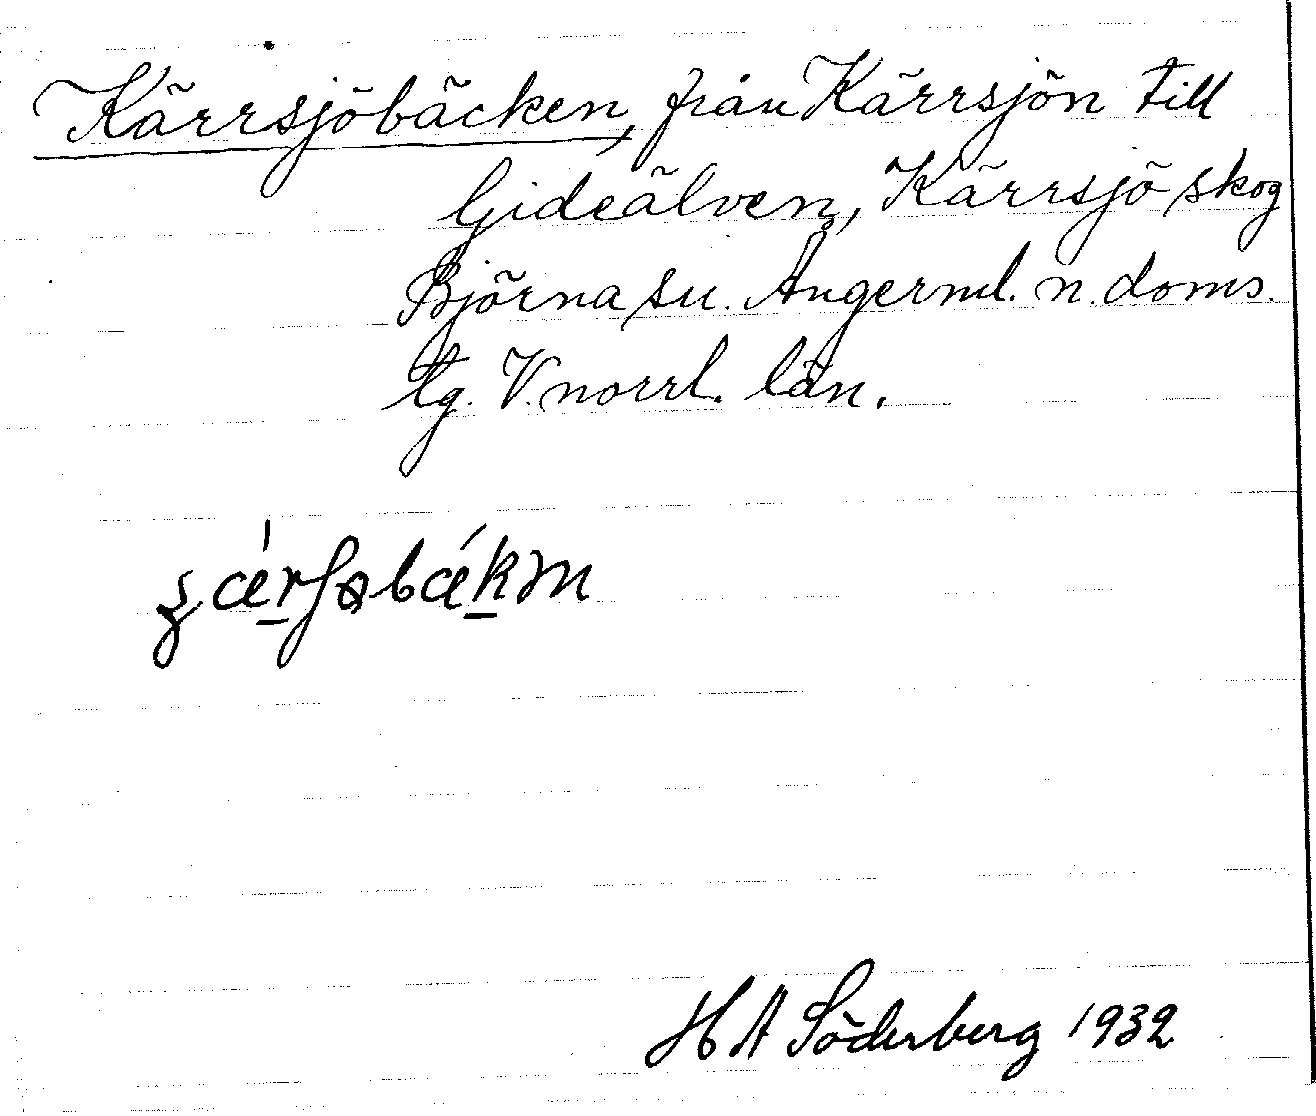 Kärrsjöbäcken, från Kärrsjön till
Gideälven, Kärrsjö skog
Björna sn. Ångerml. n. doms.
tg. V.norrl. län.
H A Söderberg 1932